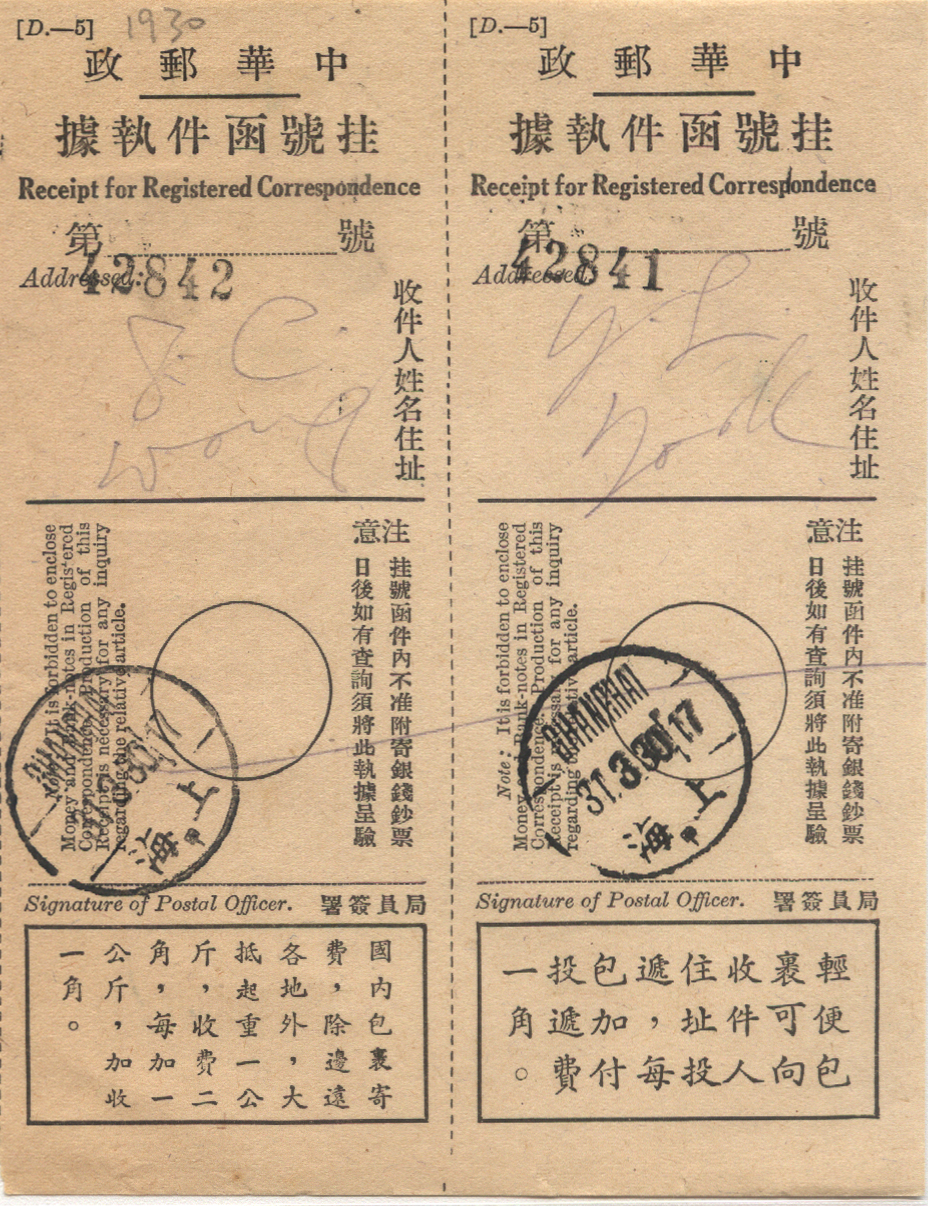 [D.—5]
1930
中華郵政
挂號函件執據
Receipt for Registered Correspondence
第 號
42842
Addressed:
收件人姓名住址
J. C.
Wong
注意
挂號函件內不准附寄銀錢鈔票
日後如有查詢須將此執據呈驗
Note: It is forbidden to enclose
Money and Bank-notes in Registered
Correspondence. Production of this
Receipt is necessary for any inquiry
regarding the relative article.
上海
Signature of Postal Officer. 局員簽署
國內包裹寄
費，除邊遠
各地外，大
抵起重一公
斤，收費二
角，每加一
公斤，加收
一角。
[D.—5]
中華郵政
挂號函件執據
Receipt for Registered Correspondence
第 號
42841
Addressed:
收件人姓名住址
Y. L.
注意
挂號函件內不准附寄銀錢鈔票
日後如有查詢須將此執據呈驗
Note: It is forbidden to enclose
Money and Bank-notes in Registered
Correspondence. Production of this
Receipt is necessary for any inquiry
regarding the relative article.
SHANGHAI
31.3.30.17
上海
Signature of Postal Officer. 局員簽署
輕便包
裹可向
收件人
住址投
遞，每
包加付
投遞費
一角。